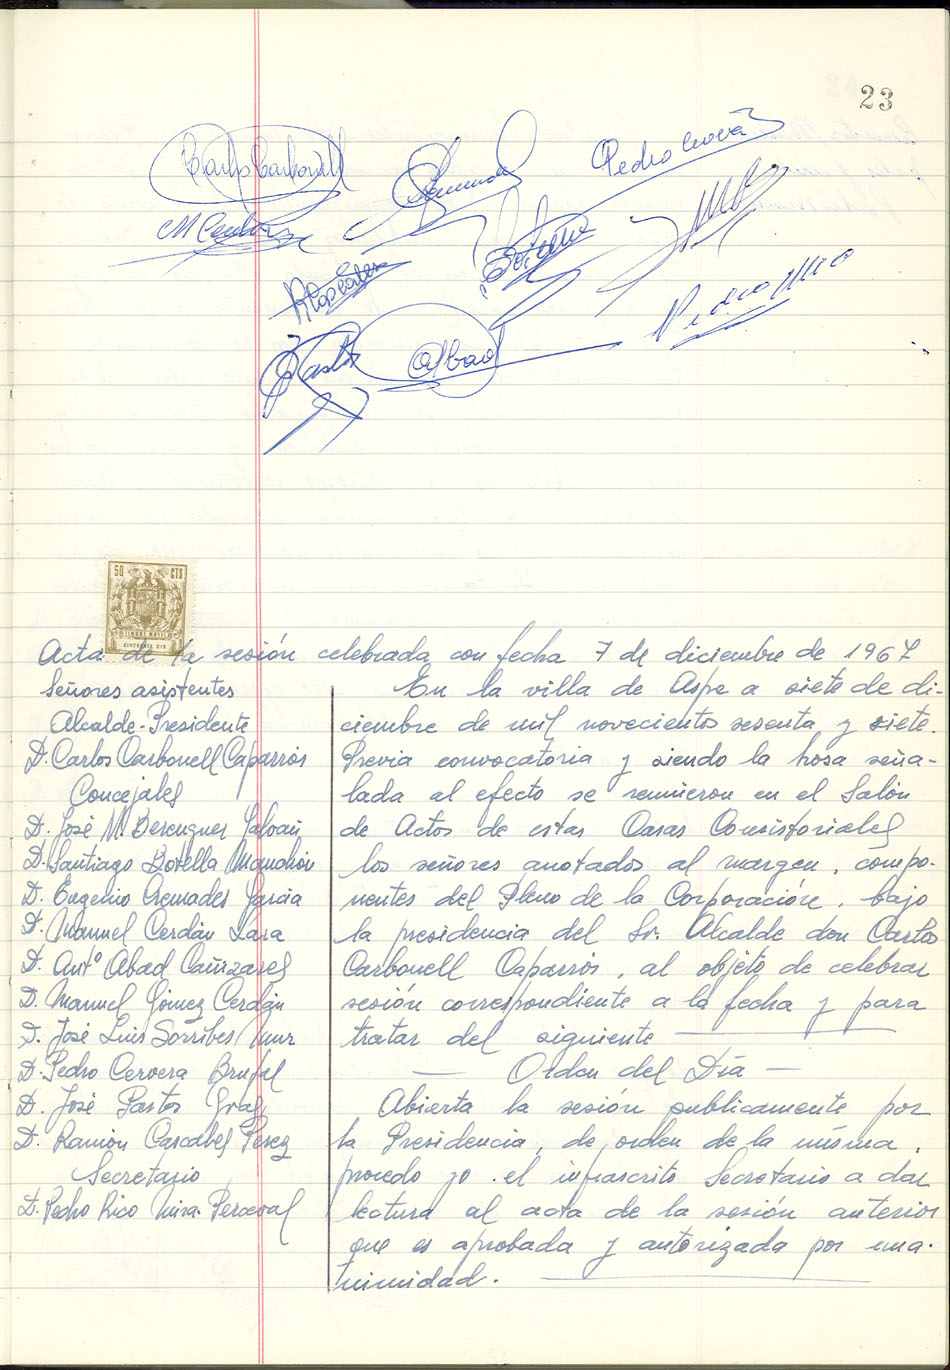 23
Carlos Carbonell
Pedro Cervera
M Cerdán
Botella
RCascales
Pedro Rico
JPastor
Abad
50 CTS
TIMBRE MOVIL
CINCUENTA CTS
Acta de la sesión celebrada con fecha 7 de diciembre de 1967
Señores asistentes
Alcalde-Presidente
D. Carlos Carbonell Caparrós
Concejales
D. José M. Berenguer Galván
D. Santiago Botella Manchón
D. Eugenio Cremades García
D. Manuel Cerdán Lara
D. Antº Abad Cañizares
D. Manuel Gómez Cerdán
D. José Luis Sorribes Mur
D. Pedro Cervera Brufal
D. José Pastor Gras
D. Ramón Cascales Pérez
Secretario
D. Pedro Rico Mira-Perceval
En la villa de Aspe a siete de di-
ciembre de mil novecientos sesenta y siete.
Previa convocatoria y siendo la hora seña-
lada al efecto se reunieron en el Salón
de Actos de estas Casas Consistoriales
los señores anotados al margen, compo-
nentes del Pleno de la Corporación, bajo
la presidencia del Sr. Alcalde don Carlos
Carbonell Caparrós, al objeto de celebrar
sesión correspondiente a la fecha y para
tratar del siguiente
— Orden del Día —
Abierta la sesión publicamente por
la Presidencia, de orden de la misma,
procedo yo el infrascrito Secretario a dar
lectura al acta de la sesión anterior
que es aprobada y autorizada por una-
nimidad.